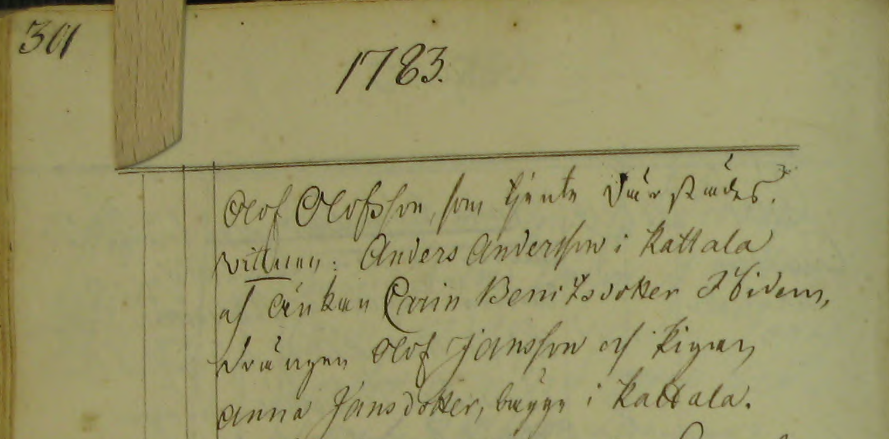 301
1783.
Olof Olofsson, som tjente därstädes.
vittnen: Anders Andersson i Kattala
och Änkan Carin Bengtsdotter Ibidem,
drängen Olof Jansson och Pigan
Anna Jansdotter, bägge i Kattala.